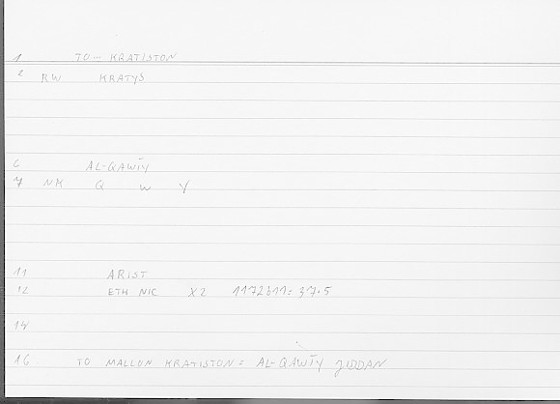 1 TO- KRATISTON
2 RW KRATYS
6 AL-QAWĪY
7 NM Q W Y
11 ARIST
12 ETH NIC X2 1172b11: 37.5
14
16 TO MALLON KRATISTON: AL-QAWĪY JIDDAN